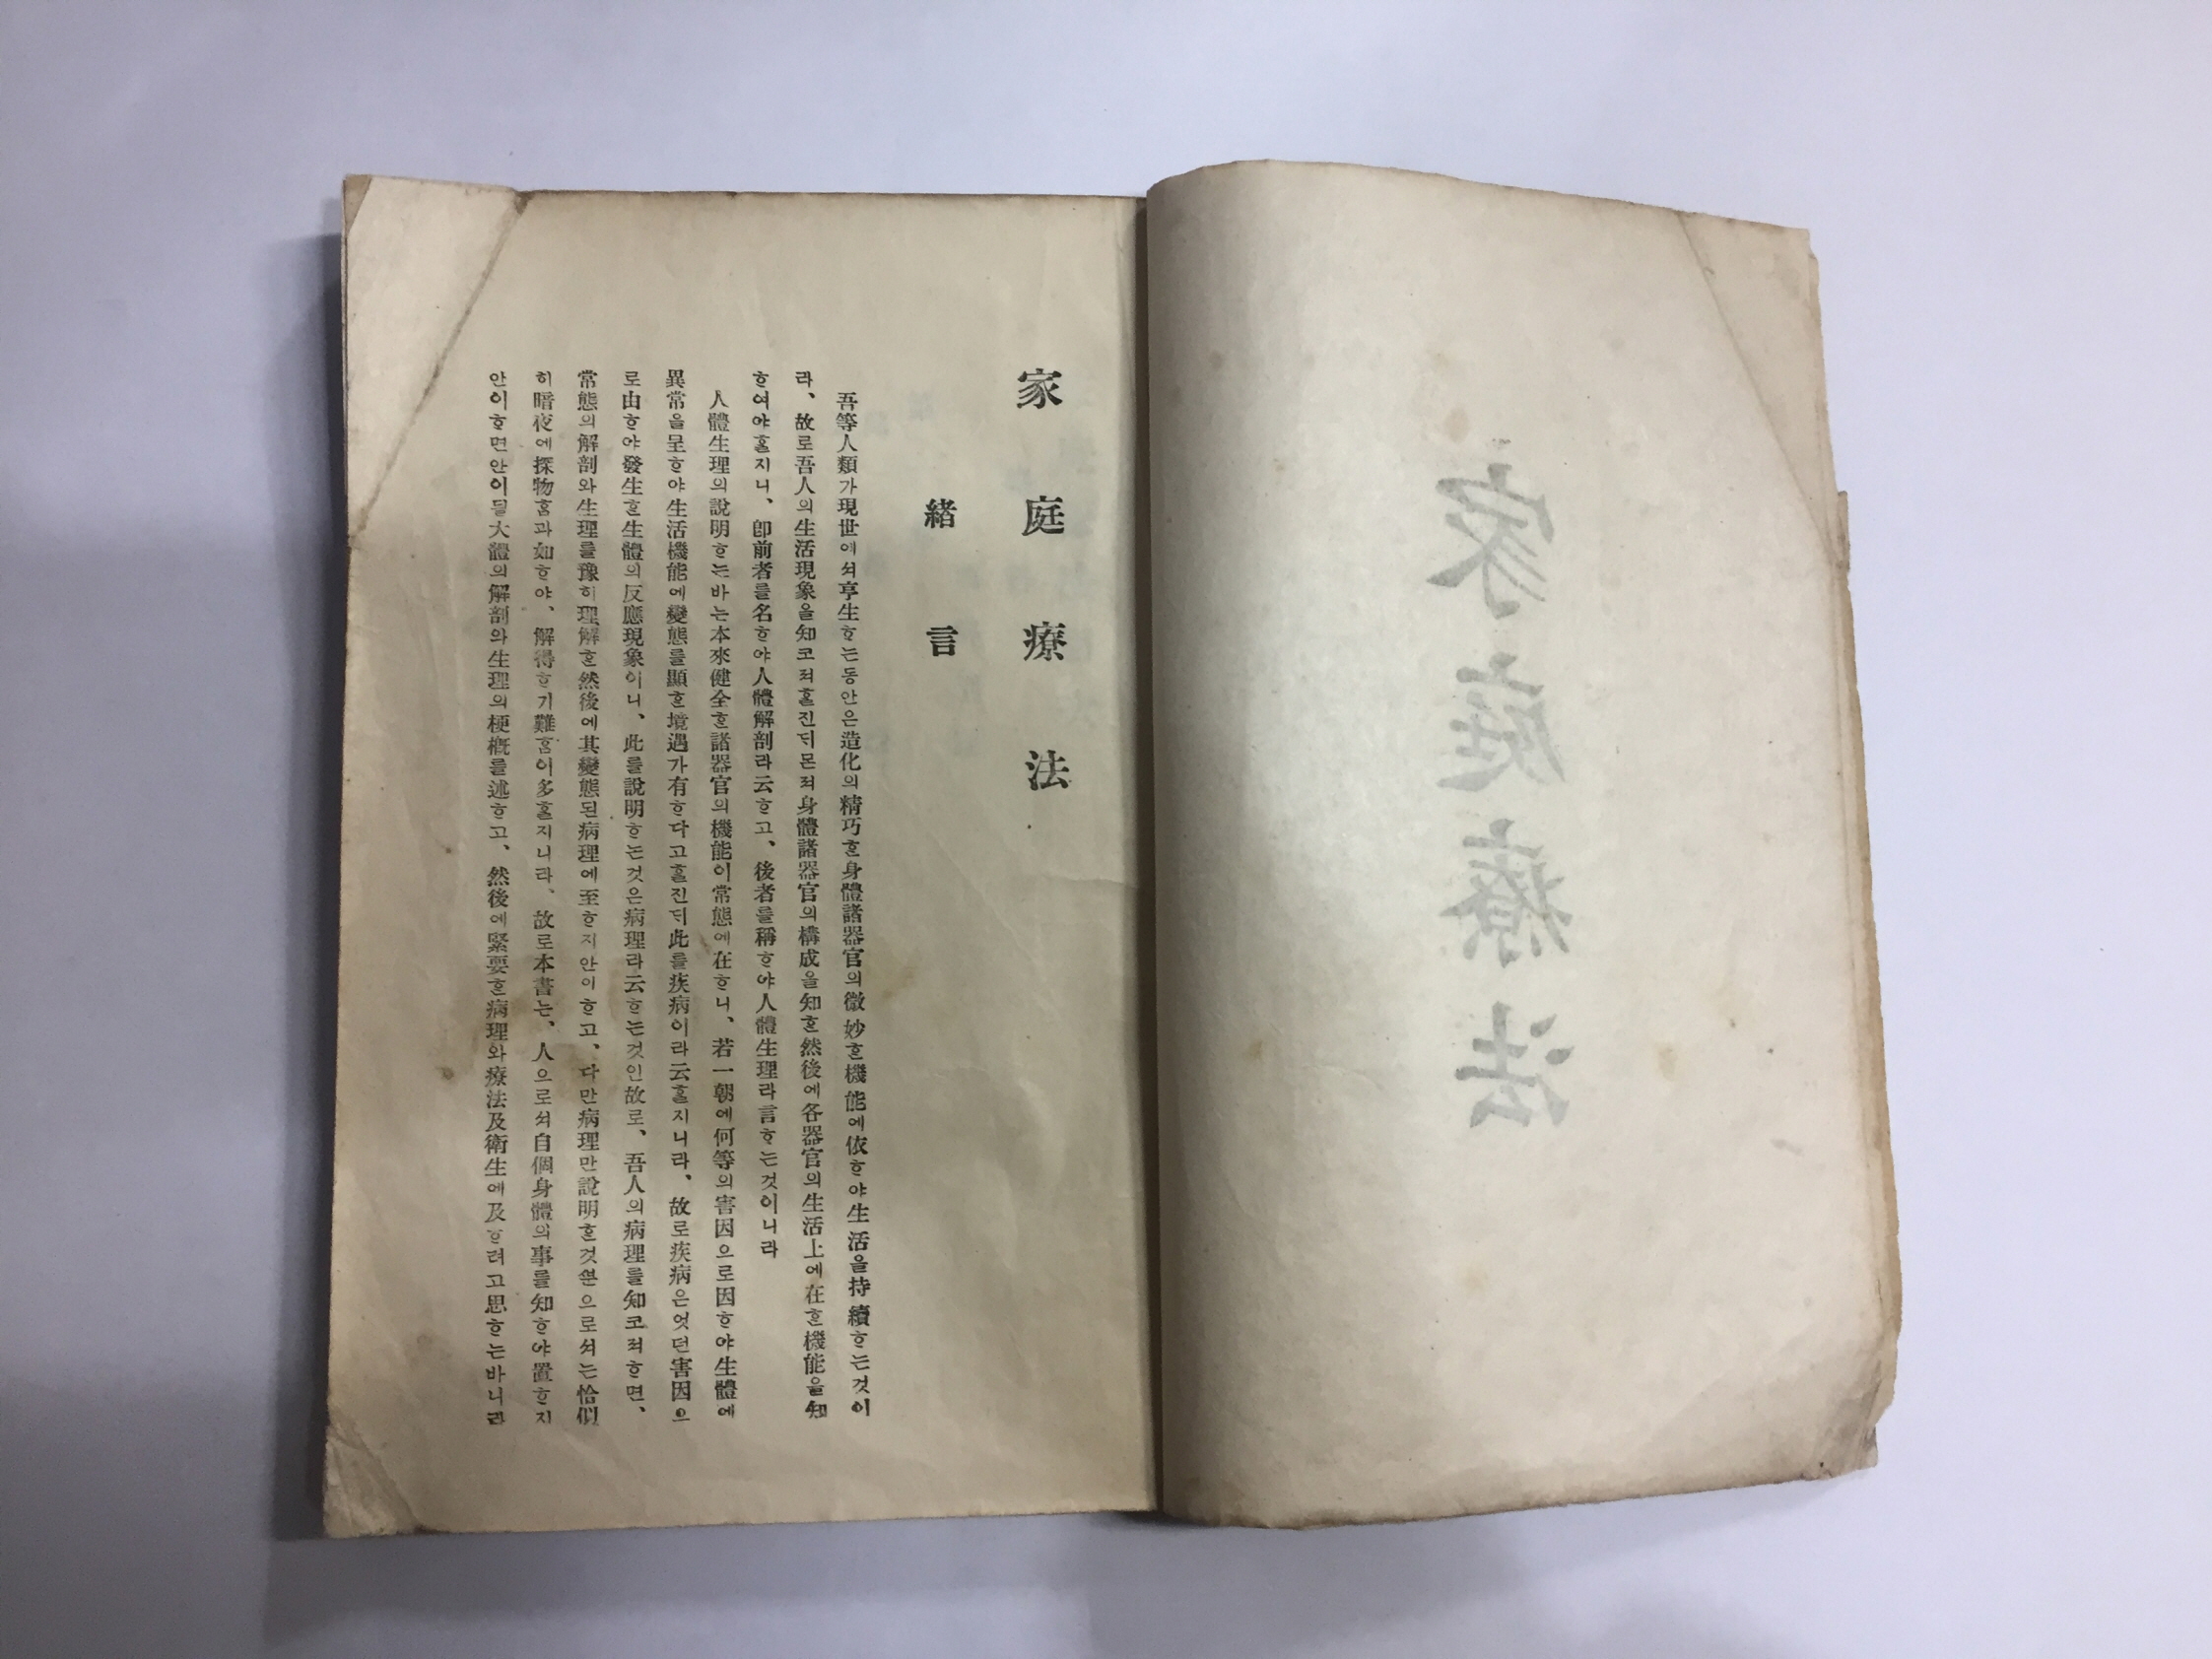 家庭療法
家庭療法
緖言
吾等人類가現世에셔亨生ᄒᆞ는동안은造化의精巧ᄒᆞᆫ身體諸器官의微妙ᄒᆞᆫ機能에依ᄒᆞ야生活을持續ᄒᆞ는것이
라、故로吾人의生活現象을知코져ᄒᆞᆯ진ᄃᆡ몬져身體諸器官의構成을知ᄒᆞᆫ然後에各器官의生活上에在ᄒᆞᆫ機能을知
ᄒᆞ여야ᄒᆞᆯ지니、卽前者를名ᄒᆞ야人體解剖라云ᄒᆞ고、後者를稱ᄒᆞ야人體生理라言ᄒᆞ는것이니라
人體生理의說明ᄒᆞ는바는本來健全ᄒᆞᆫ諸器官의機能이常態에在ᄒᆞ니、若一朝에何等의害因으로因ᄒᆞ야生體에
異常을呈ᄒᆞ야生活機能에變態를顯ᄒᆞᆫ境遇가有ᄒᆞ다고ᄒᆞᆯ진ᄃᆡ此를疾病이라云ᄒᆞᆯ지니라、故로疾病은엇던害因으
로由ᄒᆞ야發生ᄒᆞᆫ生體의反應現象이니、此를說明ᄒᆞ는것은病理라云ᄒᆞ는것인故로、吾人의病理를知코져ᄒᆞ면、
常態의解剖와生理를豫히理解ᄒᆞᆫ然後에其變態된病理에至ᄒᆞ지안이ᄒᆞ고、다만病理만說明ᄒᆞᆫ것ᄲᅮᆫ으로셔는恰似
히暗夜에探物ᄒᆞᆷ과如ᄒᆞ야、解得ᄒᆞ기難ᄒᆞᆷ이多ᄒᆞᆯ지니라、故로本書는、人으로셔自個身體의事를知ᄒᆞ야置ᄒᆞ지
안이ᄒᆞ면안이될大體의解剖와生理의梗槪를述ᄒᆞ고、然後에緊要ᄒᆞᆫ病理와療法及衛生에及ᄒᆞ려고思ᄒᆞ는바니라